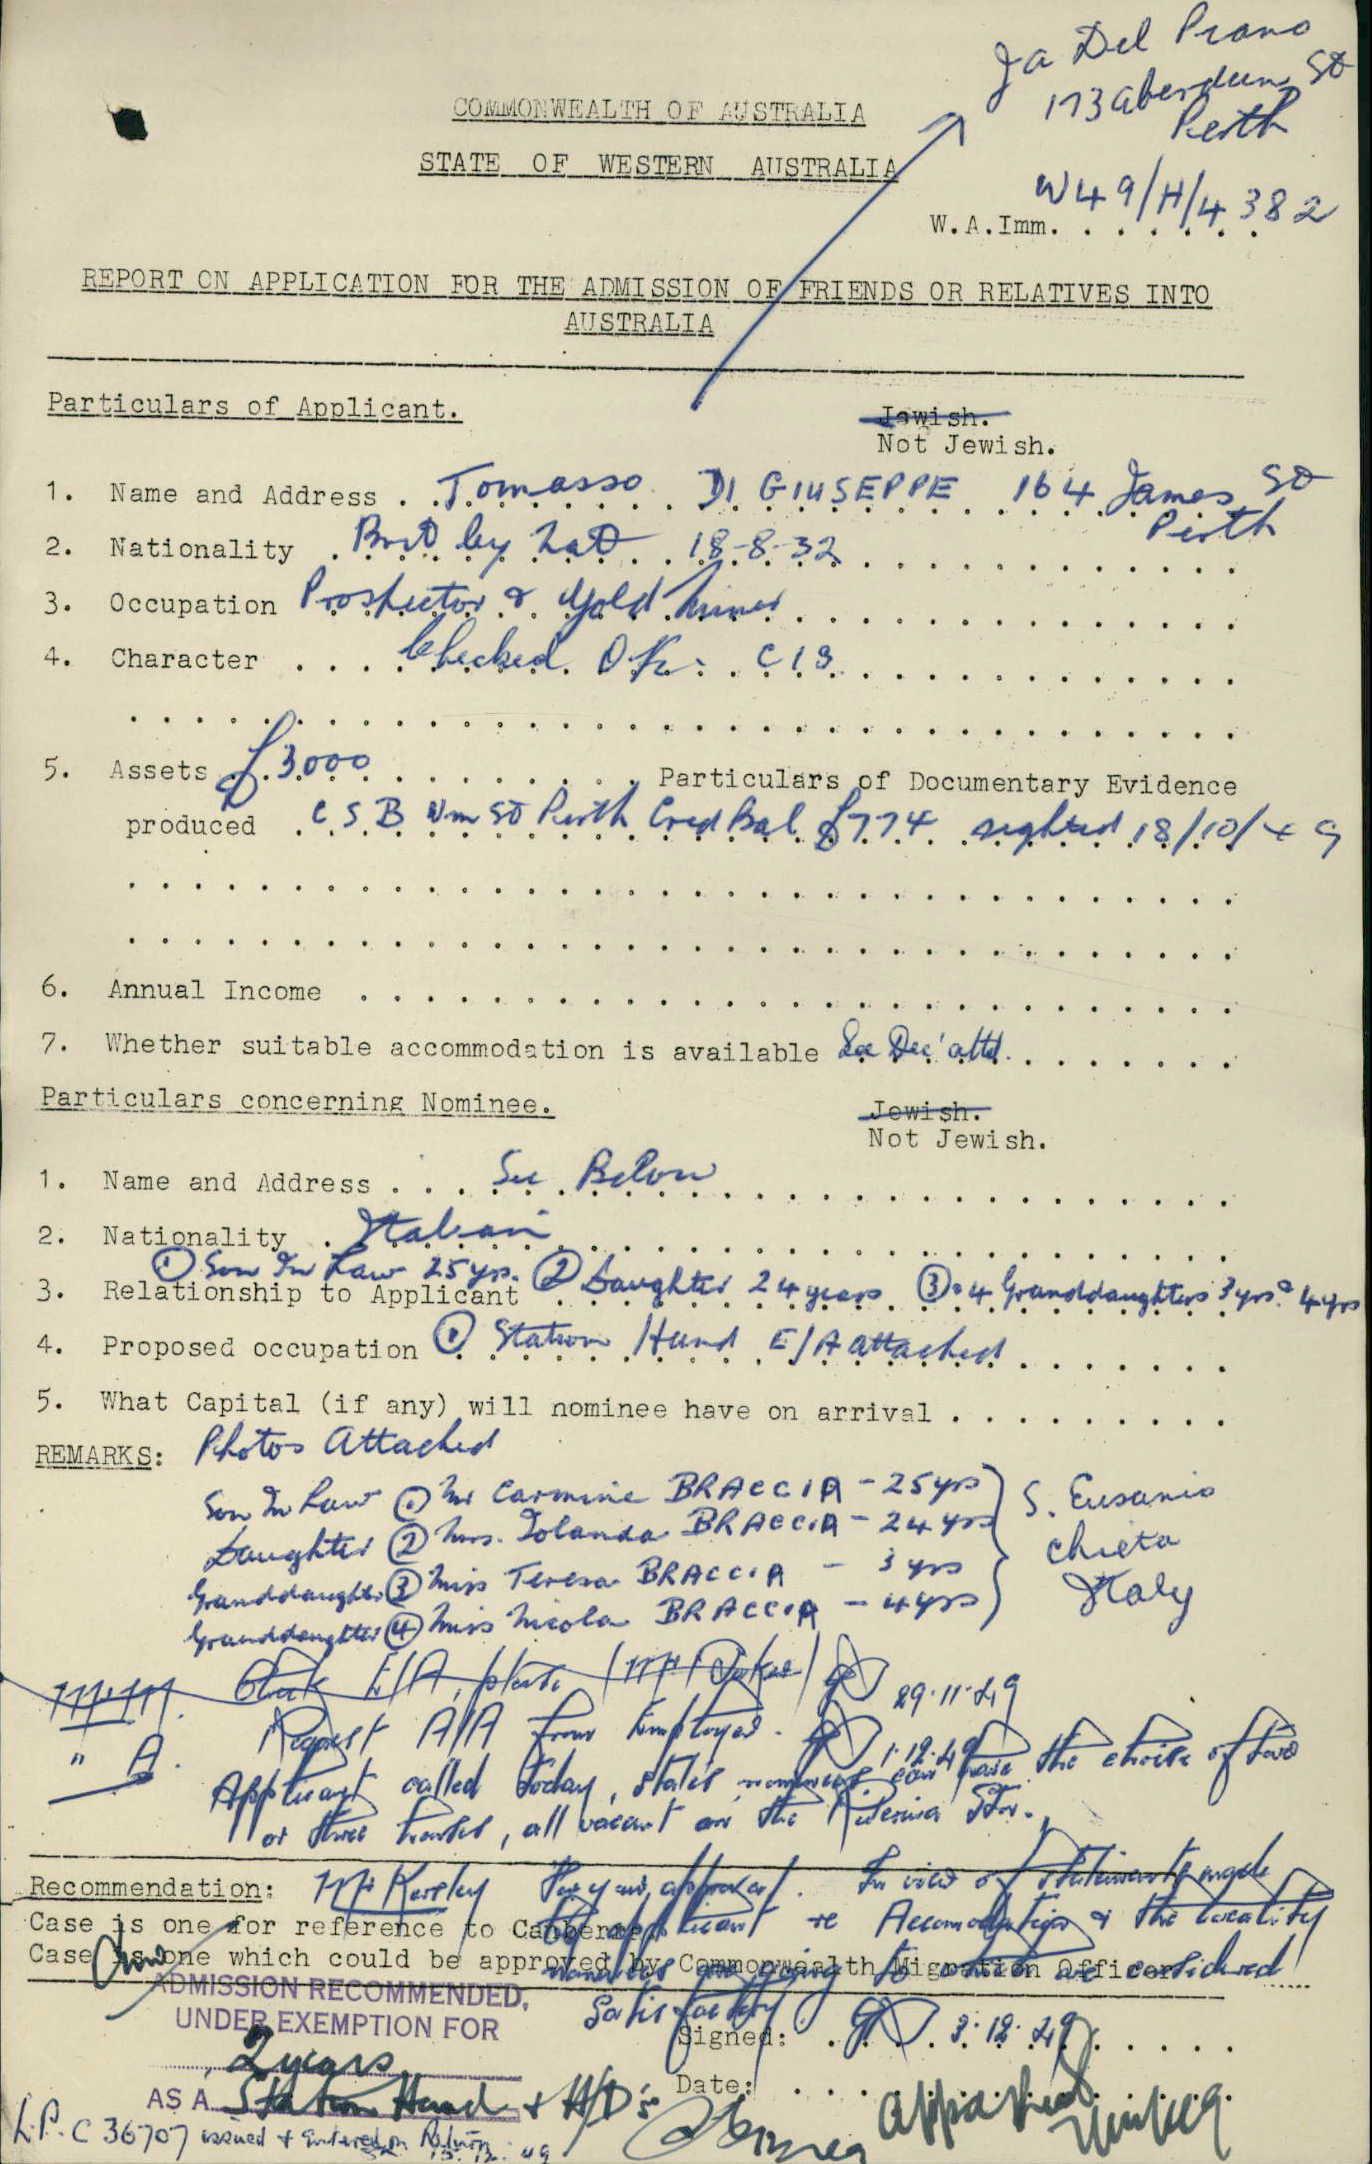 Ja Del Piano
173 Aberdeen St
Perth
COMMONWEALTH OF AUSTRALIA
STATE OF WESTERN AUSTRALIA
W.A.Imm. W49/H/4382
REPORT ON APPLICATION FOR THE ADMISSION OF FRIENDS OR RELATIVES INTO
AUSTRALIA
Particulars of Applicant.
Jewish.
Not Jewish.
1. Name and Address . Tomasso DI GIUSEPPE 164 James St
Perth
2. Nationality . Brit by Nat 18-8-32
3. Occupation Prospector & Gold Miner
4. Character . . . . Checked O.K. C I S
5. Assets £3000 Particulars of Documentary Evidence
produced . C S B Wm St Perth Cred Bal £774 sighted 18/10/49
6. Annual Income
7. Whether suitable accommodation is available See Dec' attd.
Particulars concerning Nominee.
Jewish.
Not Jewish.
1. Name and Address . . . See Below
2. Nationality . Italian
① Son In Law 25 yrs. ② Daughter 24 years ③ & 4 Granddaughters 3 yrs & 4 yrs
3. Relationship to Applicant
4. Proposed occupation ① Station Hand E/A attached
5. What Capital (if any) will nominee have on arrival
REMARKS: Photos Attached
Son In Law ① Mr Carmine BRACCIA - 25 yrs
Daughter ② Mrs. Iolanda BRACCIA - 24 yrs
Granddaughter ③ Miss Teresa BRACCIA - 3 yrs
Granddaughter ④ Miss Nicola BRACCIA - 4 yrs
S. Eusanio
Chieto
Italy
Check E/A, please 29.11.49
" A. Request A/A from Employer. 1.12.49
Applicant called today, states nominees can have the choice of two
or three houses, all vacant on the Stn.
Recommendation: For your approval. In view of statements made
by applicant re Accomodation & the locality
nominees are going to are considered
satisfactory.
Case is one for reference to Canberra
Case is one which could be approved by Commonwealth Migration Officer
ADMISSION RECOMMENDED,
UNDER EXEMPTION FOR
2 years
AS A Station Hand + H/D's
Signed: 3.12.49
Date:
Approved
L.P. C 36707 issued & entered on 15.12.49